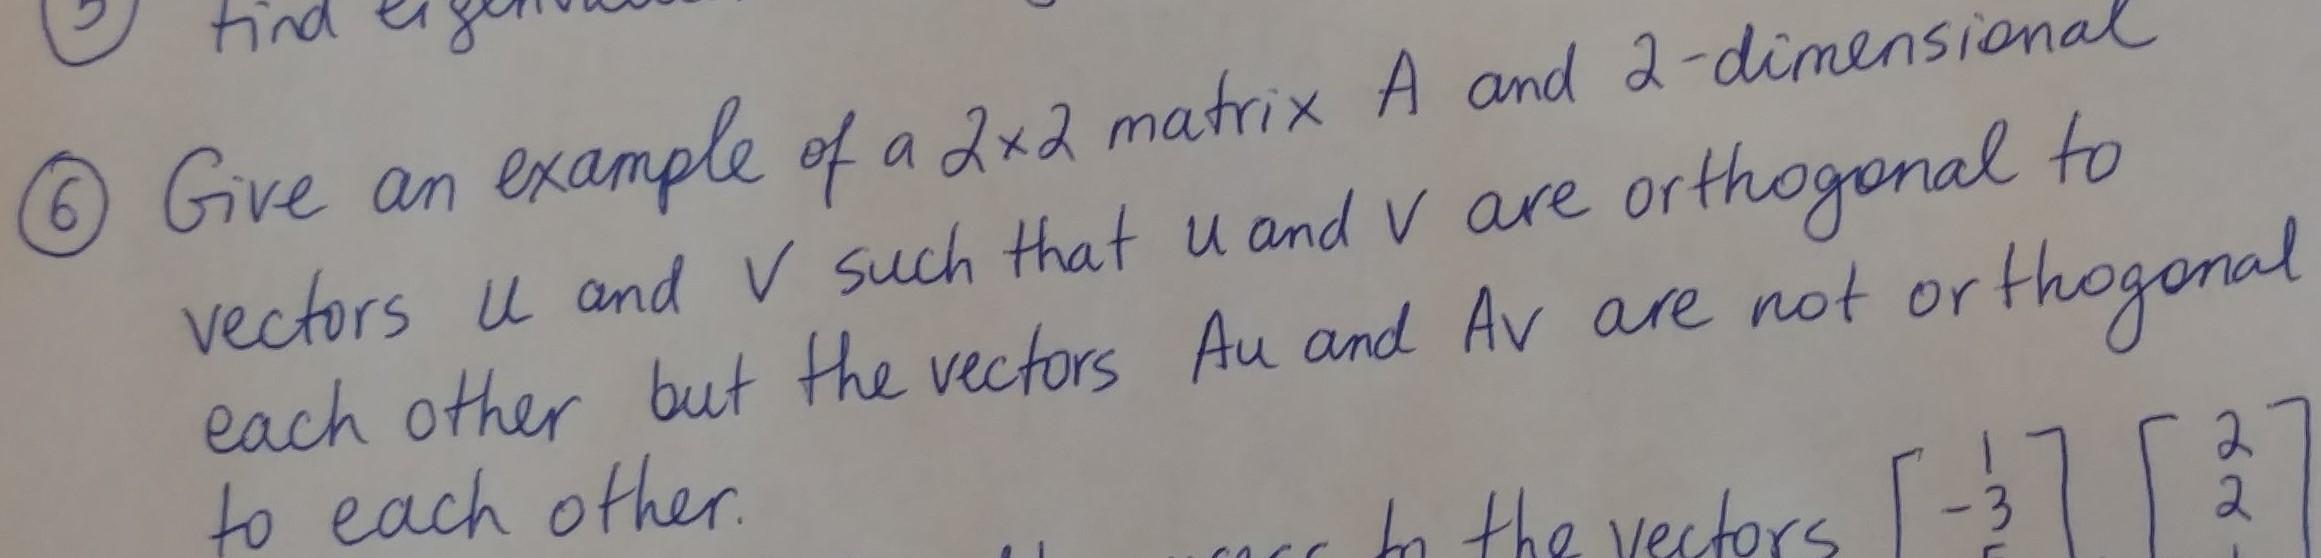 5 find
6 Give an example of a 2×2 matrix A and 2-dimensional
vectors u and v such that u and v are orthogonal to
each other but the vectors Au and Av are not orthogonal
to each other.
to the vectors [1 -3] [2 2]